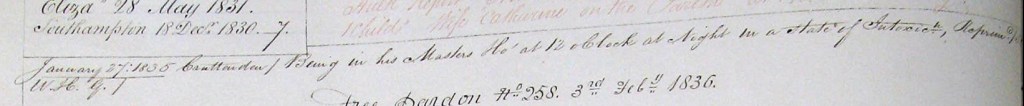 Eliza 28 May 1831.
Southampton 18 Decr. 1830. 7.
Childs Wife Catharine on the
January 27: 1835 Cruttenden / Being in his Masters Ho at 12 o Clock at Night in a State of Intoxicn, Reprimd
W.H. G. /
Free Pardon No 258. 3rd Feby 1836.